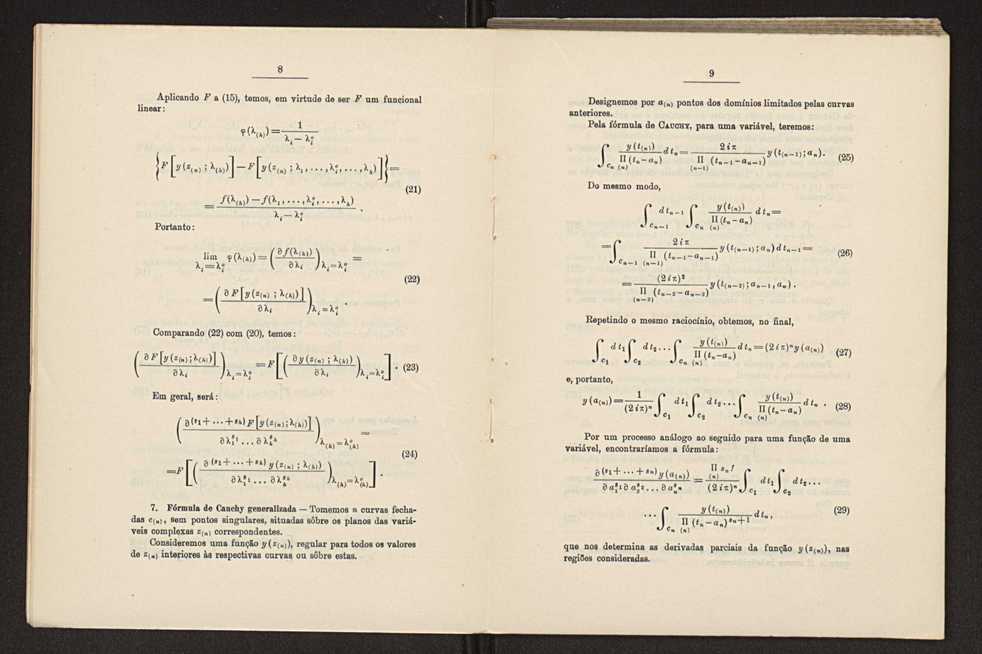 8
Aplicando F a (15), temos, em virtude de ser F um funcional
linear:
φ(λ₍ₕ₎) = 1 / (λᵢ − λᵢ°)
{F[y(z₍ₙ₎ ; λ₍ₕ₎)] − F[y(z₍ₙ₎ ; λ₁, ..., λᵢ°, ..., λₕ)]} =
(21)
= (f(λ₍ₕ₎) − f(λ₁, ..., λᵢ°, ..., λₕ)) / (λᵢ − λᵢ°) .
Portanto:
lim_{λᵢ=λᵢ°} φ(λ₍ₕ₎) = (∂f(λ₍ₕ₎) / ∂λᵢ)_{λᵢ=λᵢ°} =
(22)
= (∂F[y(z₍ₙ₎ ; λ₍ₕ₎)] / ∂λᵢ)_{λᵢ=λᵢ°} .
Comparando (22) com (20), temos:
(∂F[y(z₍ₙ₎;λ₍ₕ₎)] / ∂λᵢ)_{λᵢ=λᵢ°} = F[(∂y(z₍ₙ₎ ; λ₍ₕ₎) / ∂λᵢ)_{λᵢ=λᵢ°}] . (23)
Em geral, será:
(∂^(s₁+...+sₕ) F[y(z₍ₙ₎;λ₍ₕ₎)] / ∂λ₁^s₁ ... ∂λₕ^sₕ)_{λ₍ₕ₎=λ°₍ₕ₎} =
(24)
= F[(∂^(s₁+...+sₕ) y(z₍ₙ₎ ; λ₍ₕ₎) / ∂λ₁^s₁ ... ∂λₕ^sₕ)_{λ₍ₕ₎=λ°₍ₕ₎}] .
7. Fórmula de Cauchy generalizada — Tomemos n curvas fecha-
das c₍ₙ₎, sem pontos singulares, situadas sôbre os planos das variá-
veis complexas z₍ₙ₎ correspondentes.
Consideremos uma função y(z₍ₙ₎), regular para todos os valores
de z₍ₙ₎ interiores às respectivas curvas ou sôbre estas.
9
Designemos por a₍ₙ₎ pontos dos domínios limitados pelas curvas
anteriores.
Pela fórmula de CAUCHY, para uma variável, teremos:
∫_{cₙ} y(t₍ₙ₎) / Π₍ₙ₎(tₙ−aₙ) dtₙ = 2iπ / Π₍ₙ₋₁₎(tₙ₋₁−aₙ₋₁) y(t₍ₙ₋₁₎; aₙ). (25)
Do mesmo modo,
∫_{cₙ₋₁} dtₙ₋₁ ∫_{cₙ} y(t₍ₙ₎) / Π₍ₙ₎(tₙ−aₙ) dtₙ =
= ∫_{cₙ₋₁} 2iπ / Π₍ₙ₋₁₎(tₙ₋₁−aₙ₋₁) y(t₍ₙ₋₁₎; aₙ) dtₙ₋₁ = (26)
= (2iπ)² / Π₍ₙ₋₂₎(tₙ₋₂−aₙ₋₂) y(t₍ₙ₋₂₎; aₙ₋₁, aₙ) .
Repetindo o mesmo raciocínio, obtemos, no final,
∫_{c₁} dt₁ ∫_{c₂} dt₂ ... ∫_{cₙ} y(t₍ₙ₎) / Π₍ₙ₎(tₙ−aₙ) dtₙ = (2iπ)ⁿ y(a₍ₙ₎) (27)
e, portanto,
y(a₍ₙ₎) = 1 / (2iπ)ⁿ ∫_{c₁} dt₁ ∫_{c₂} dt₂ ... ∫_{cₙ} y(t₍ₙ₎) / Π₍ₙ₎(tₙ−aₙ) dtₙ . (28)
Por um processo análogo ao seguido para uma função de uma
variável, encontraríamos a fórmula:
∂^(s₁+...+sₙ) y(a₍ₙ₎) / ∂a₁^s₁ ∂a₂^s₂ ... ∂aₙ^sₙ = Π₍ₙ₎ sₙ! / (2iπ)ⁿ ∫_{c₁} dt₁ ∫_{c₂} dt₂ ...
... ∫_{cₙ} y(t₍ₙ₎) / Π₍ₙ₎(tₙ−aₙ)^(sₙ+1) dtₙ, (29)
que nos determina as derivadas parciais da função y(z₍ₙ₎), nas
regiões consideradas.